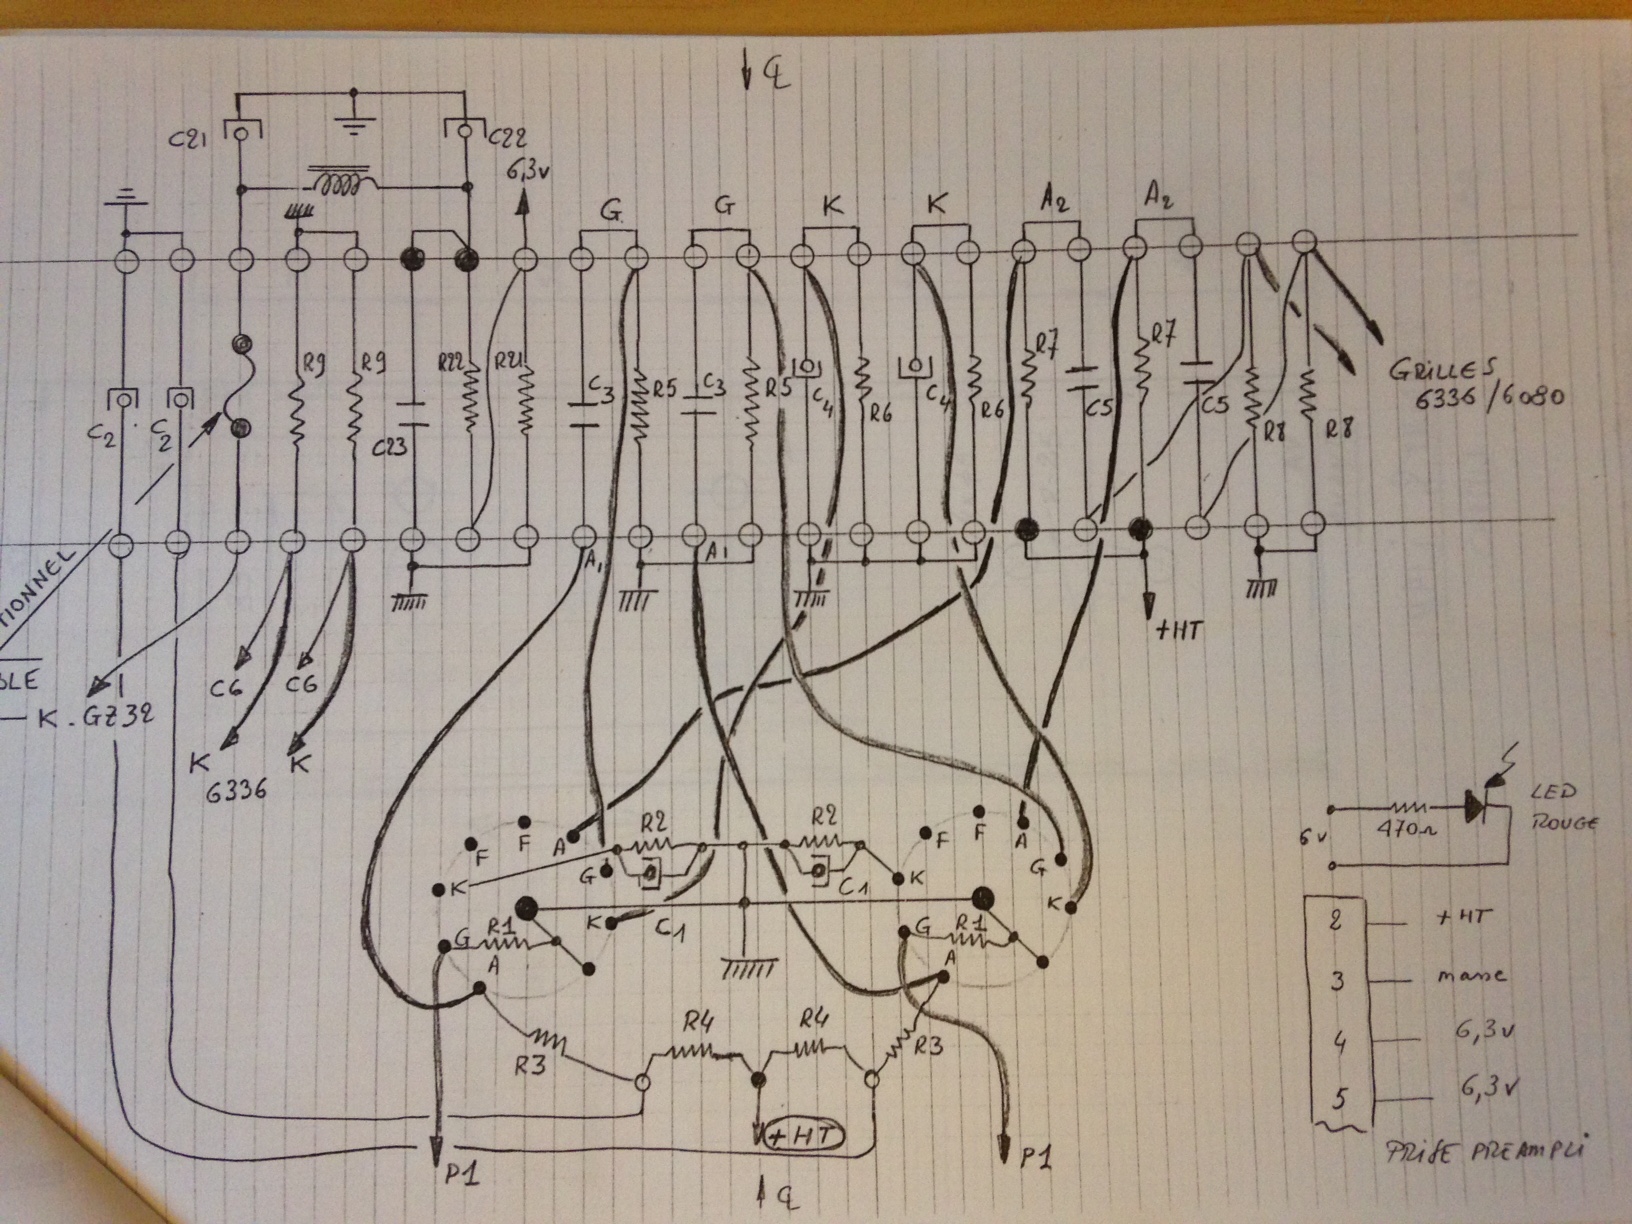 ℄
C21
C22
6,3v
G
G
K
K
A2
A2
C2
C2
R9
R9
C23
R22
R21
C3
R5
C3
R5
C4
R6
C4
R6
R7
C5
R7
C5
R8
R8
GRILLES
6336/6080
A1
A1
TIONNEL
BLE
K.GZ32
C6
C6
K
K
6336
+HT
F
F
A
K
G
R2
R2
C1
K
G
R1
A
K
C1
F
F
A
G
K
G
R1
A
R3
R4
R4
R3
+HT
P1
P1
℄
6v
470Ω
LED
ROUGE
2 +HT
3 masse
4 6,3v
5 6,3v
PRISE PREAMPLI